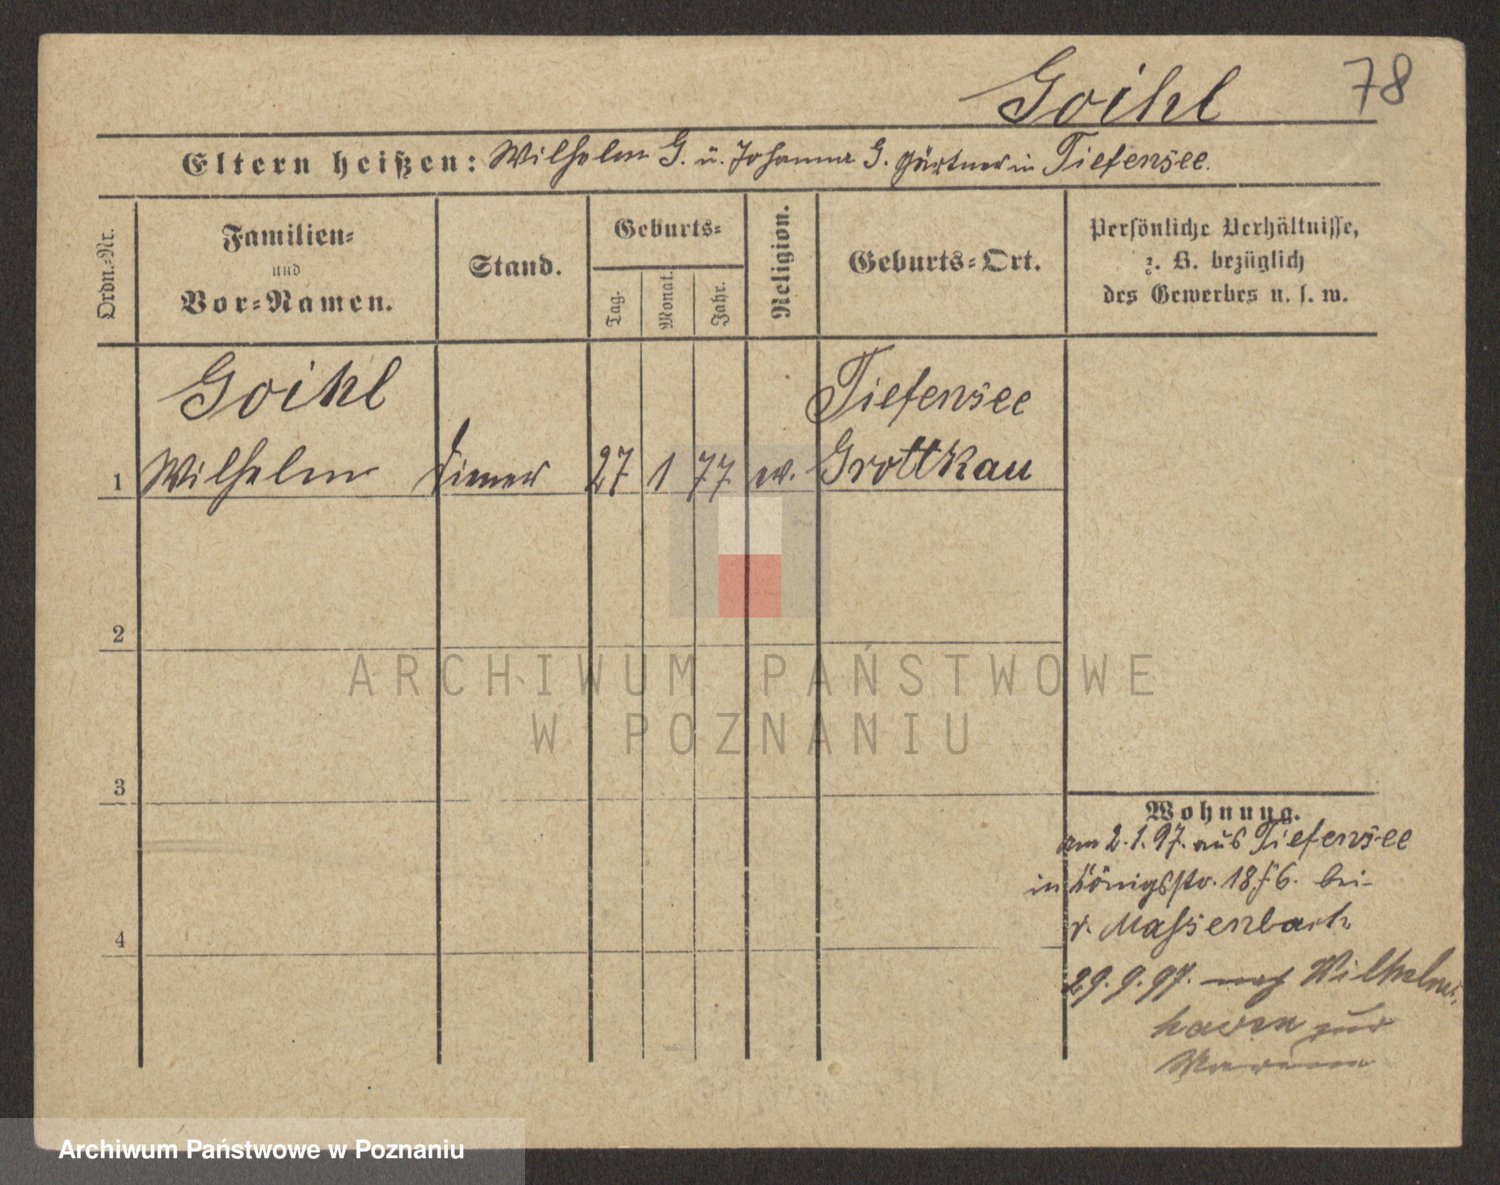 Goihl 78
Eltern heißen: Wilhelm G. u. Johanna G. Gärtner in Tiefensee.
Ordn.=Nr.
Familien=
und
Vor=Namen.
Stand.
Geburts=
Tag.
Monat.
Jahr.
Religion.
Geburts=Ort.
Persönliche Verhältnisse,
z. B. bezüglich
des Gewerbes u. s. w.
Goihl Tiefensee
1 Wilhelm Diener 27 1 77 ev. Grottkau
2
ARCHIWUM PAŃSTWOWE
W POZNANIU
3
Wohnung.
am 2.1.97. aus Tiefensee
in Königsstr. 18 bei
v. Massenbach
4
29.9.97. nach Wilhelms-
haven zur
Marine
Archiwum Państwowe w Poznaniu